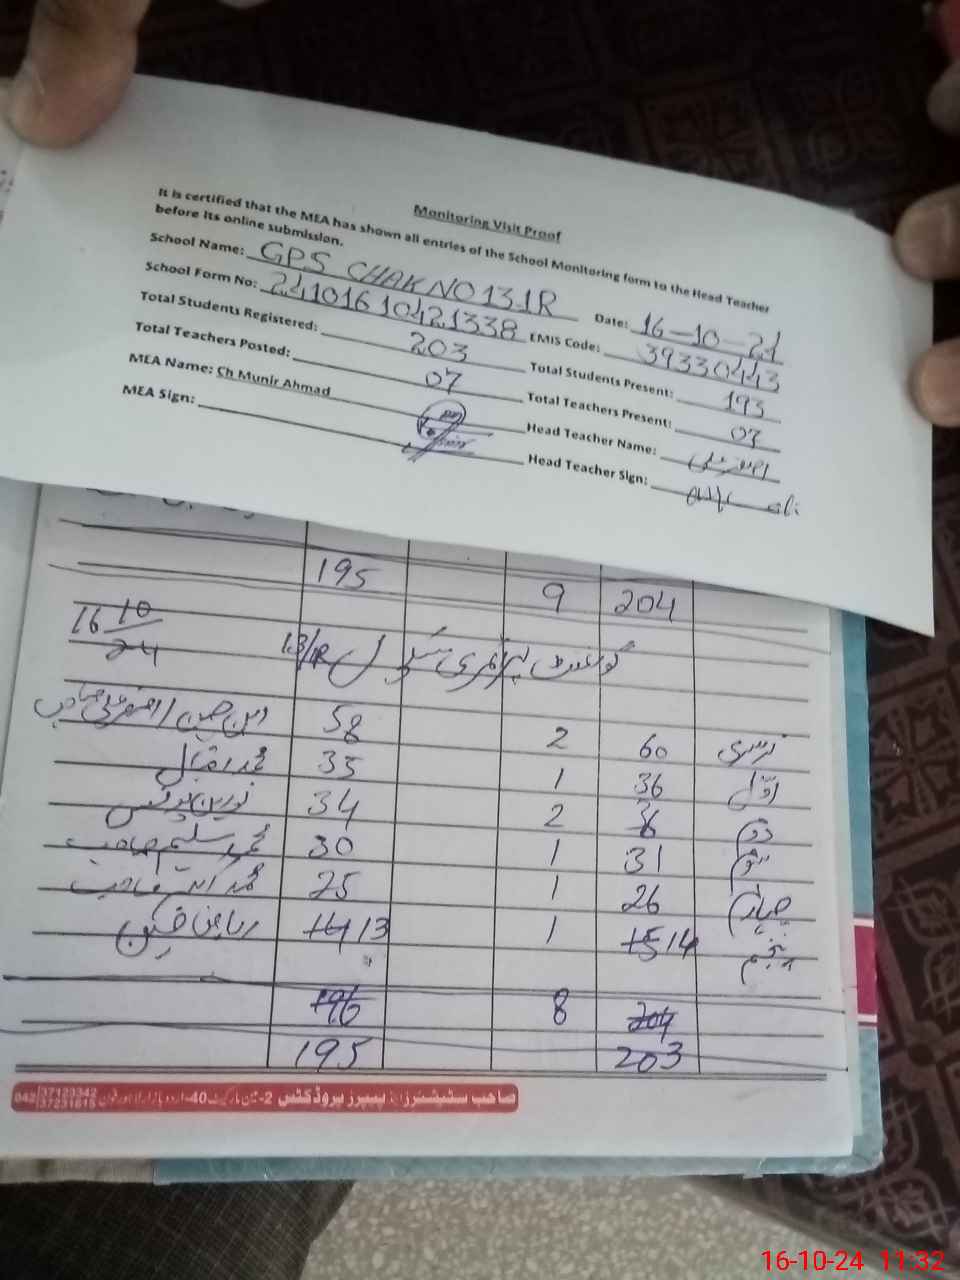 Monitoring Visit Proof
It is certified that the MEA has shown all entries of the School Monitoring form to the Head Teacher
before its online submission.
School Name: GPS CHAK NO 131R Date: 16-10-24
School Form No: 24101610421338 EMIS Code: 39330443
Total Students Registered: 203 Total Students Present: 193
Total Teachers Posted: 07 Total Teachers Present: 07
MEA Name: Ch Munir Ahmad Head Teacher Name: اصغر علی
MEA Sign: Head Teacher Sign:
195 9 204
16 10/24
گورنمنٹ پرائمری سکول 13/1R
نرسری 60 2 58
اول 36 1 35 محمد اقبال
دوم 36 2 34
سوم 31 1 30 محمد سلیم صاحب
چہارم 26 1 25
پنجم 15 14 1 14 13
204 8 196
203 195
صاحب سٹیشنرز اینڈ پیپرز پروڈکٹس 2-مین مارکیٹ 40-اردو بازار لاہور فون 042 37123342 37231615
16-10-24 11:32